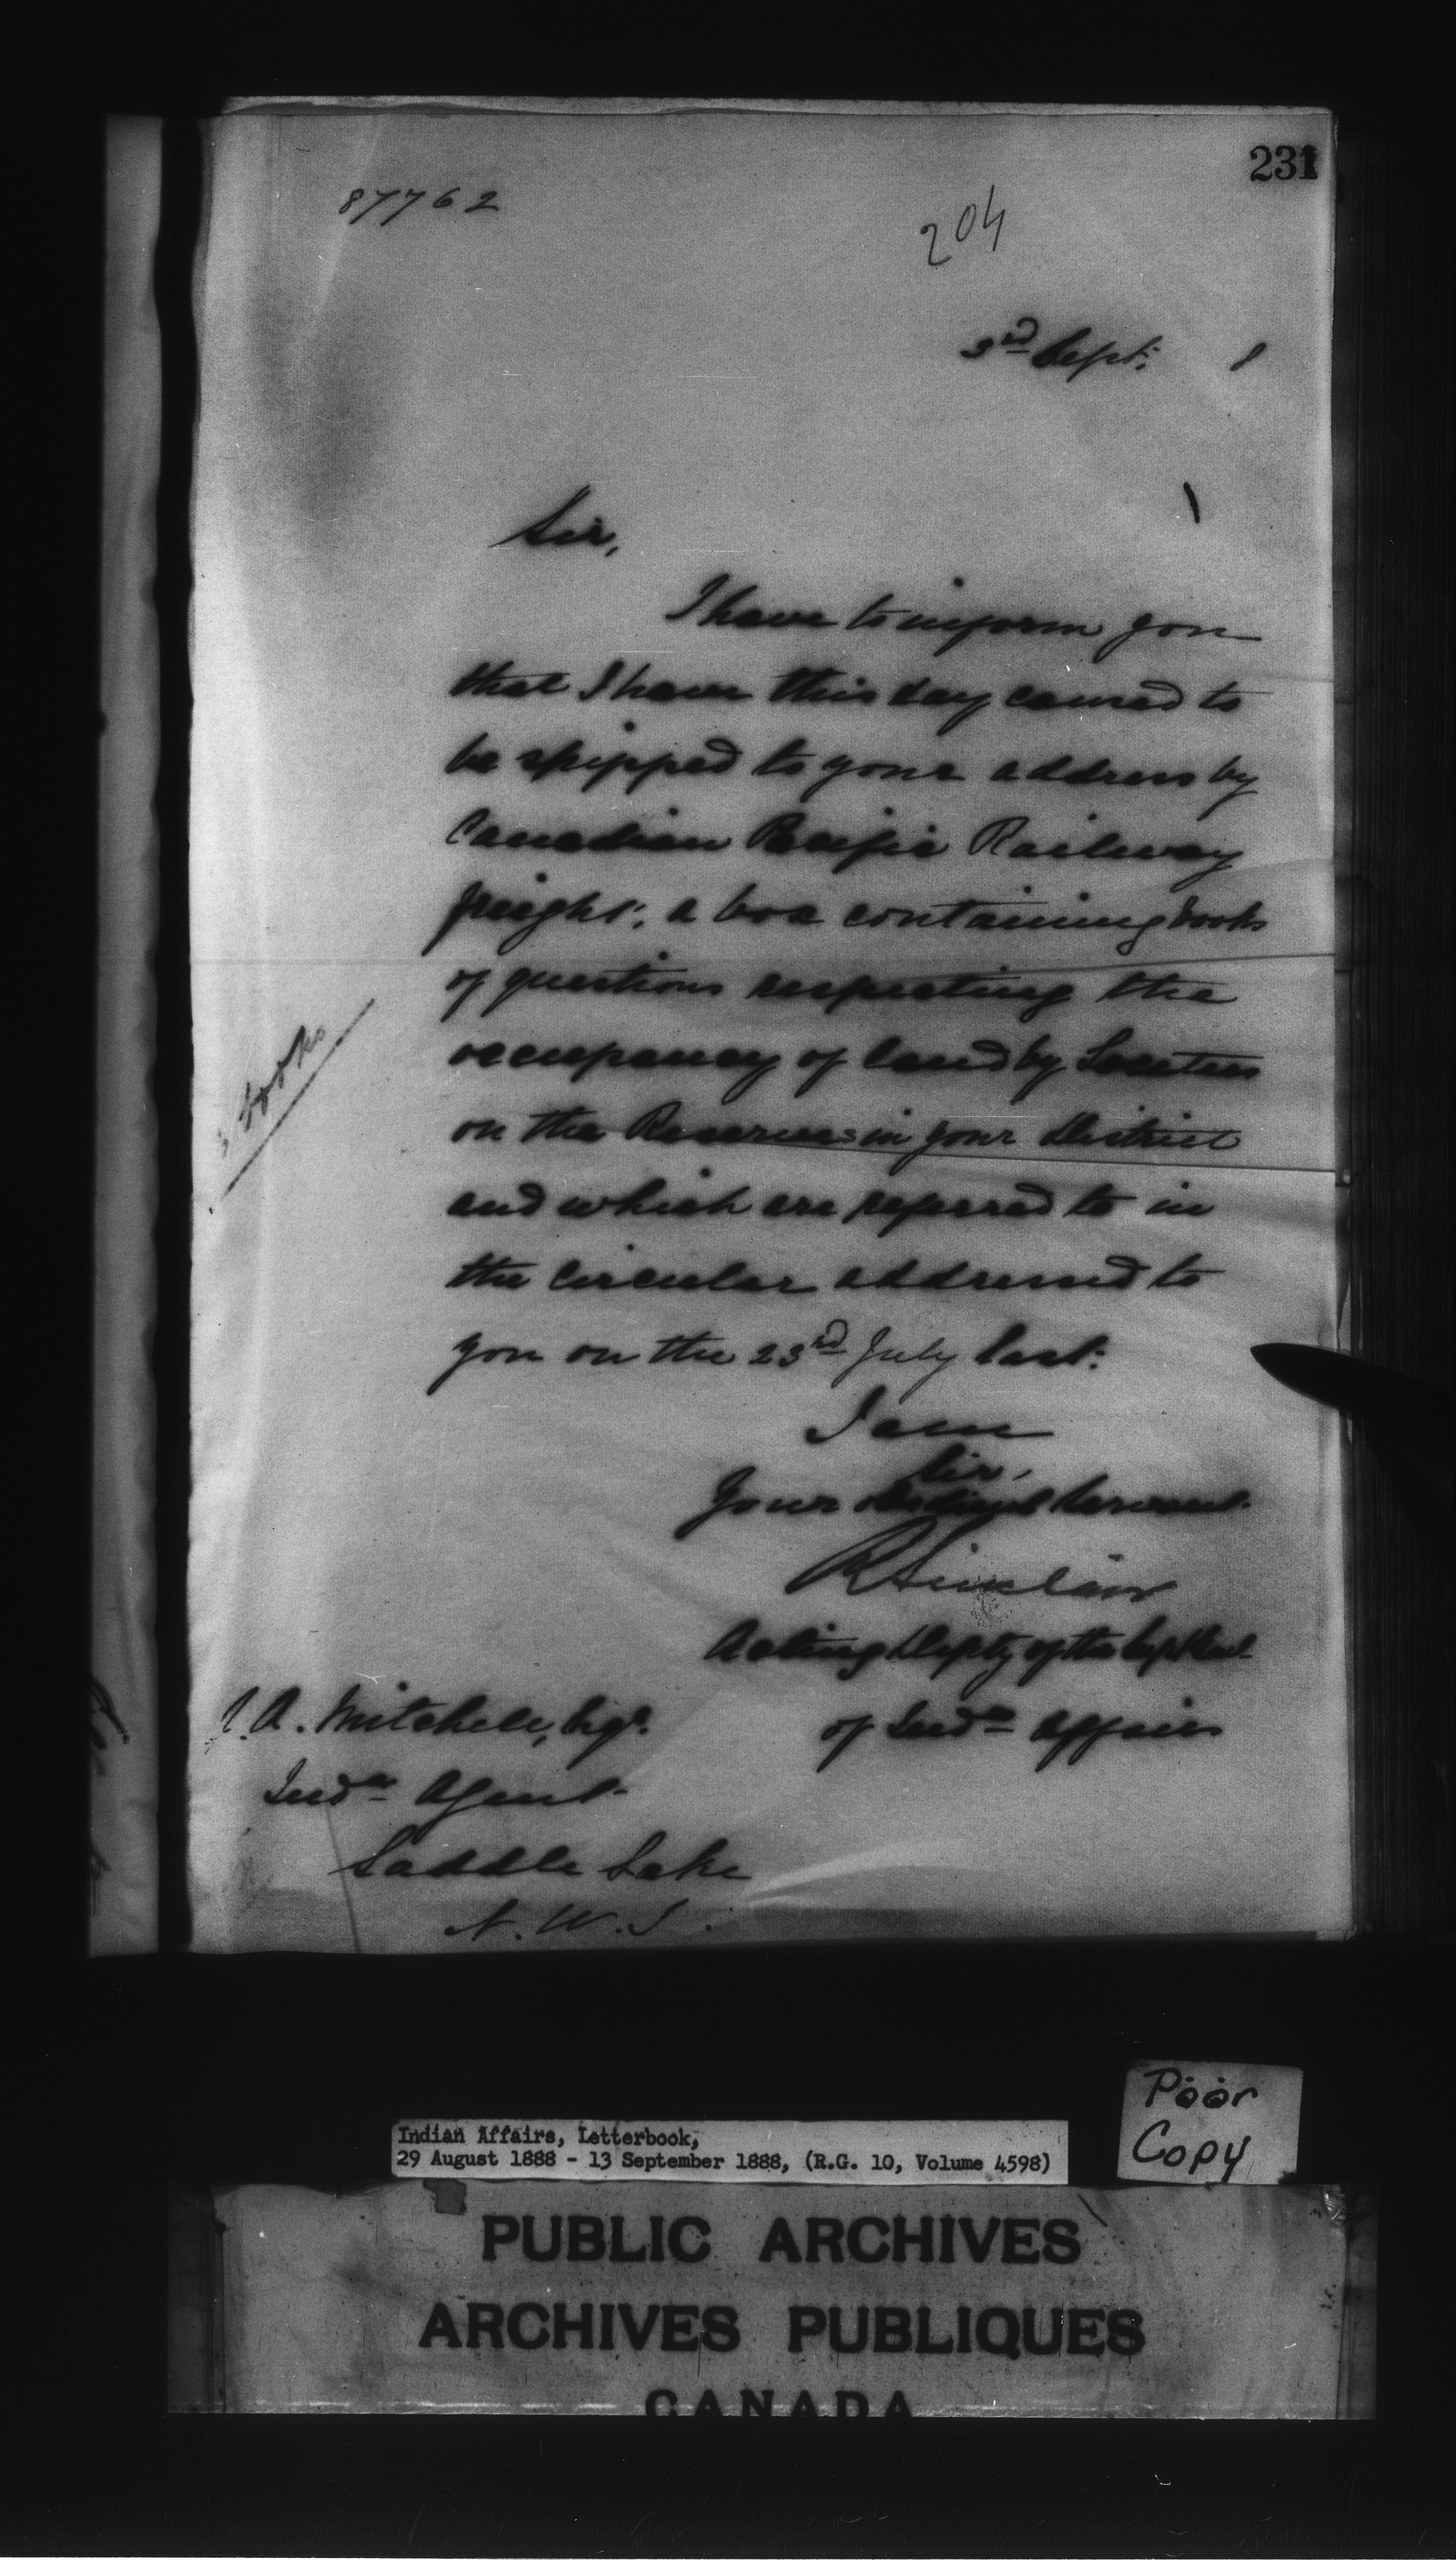 231
87762
204
3rd Sept: 8
Sir,
I have to inform you
that I have this day caused to
be shipped to your address by
Canadian Pacific Railway
freight; a box containing books
of questions respecting the
occupancy of land by Locatees
on the Reserves in your District
and which are referred to in
the circular addressed to
you on the 23rd July last.
3 books
I am
Sir,
Your obedient servant
R Sinclair
Acting Depty of the Supt Genl
of Indn Affairs
J. A. Mitchell, Esqr.
Indn Agent
Saddle Lake
N. W. T.
Poor
Copy
Indian Affairs, Letterbook,
29 August 1888 - 13 September 1888, (R.G. 10, Volume 4598)
PUBLIC ARCHIVES
ARCHIVES PUBLIQUES
CANADA